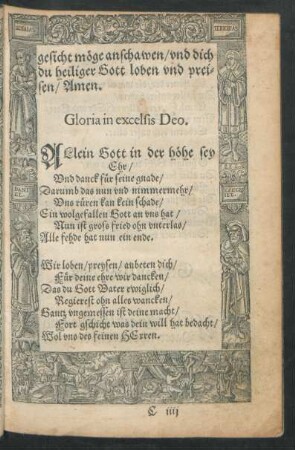 gesicht möge anschawen/vnd dich
du heiliger Gott loben vnd prei-
sen/ Amen.
Gloria in excelsis Deo.
ALlein Gott in der höhe sey
Ehr/
Vnd danck für seine gnade/
Darumb das nun vnd nimmermehr/
Vns rüren kan kein schade/
Ein wolgefallen Gott an vns hat/
Nun ist gross fried ohn vnterlas/
Alle fehde hat nun ein ende.
Wir loben/preysen/anbeten dich/
Für deine ehre wir dancken/
Das du Gott Vater ewiglich/
Regierest ohn alles wancken/
Gantz vngemessen ist deine macht/
Fort gschicht was dein will hat bedacht/
Wol vns des feinen HErren.
C iiij